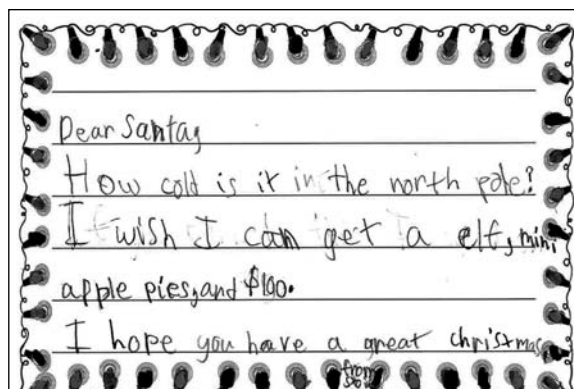 Dear Santa,
How cold is it in the north pole?
I wish I can get a elf, mini
apple pies, and $100.
I hope you have a great christmas
from